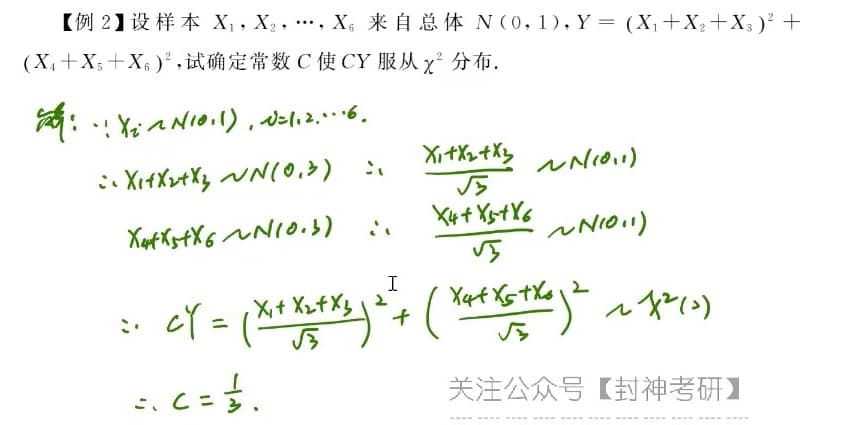 【例2】设样本 X₁, X₂, ⋯, X₆ 来自总体 N(0,1), Y = (X₁+X₂+X₃)² +
(X₄+X₅+X₆)², 试确定常数 C 使 CY 服从 χ² 分布.
解: ∵ Xi ~ N(0,1), i=1,2,⋯6.
∴ X₁+X₂+X₃ ~ N(0,3) ∴ (X₁+X₂+X₃)/√3 ~ N(0,1)
X₄+X₅+X₆ ~ N(0,3) ∴ (X₄+X₅+X₆)/√3 ~ N(0,1)
∴ CY = ((X₁+X₂+X₃)/√3)² + ((X₄+X₅+X₆)/√3)² ~ χ²(2)
∴ C = 1/3.
关注公众号【封神考研】